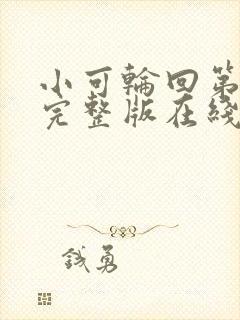 小可輪回第
完整版在綫
錢勇